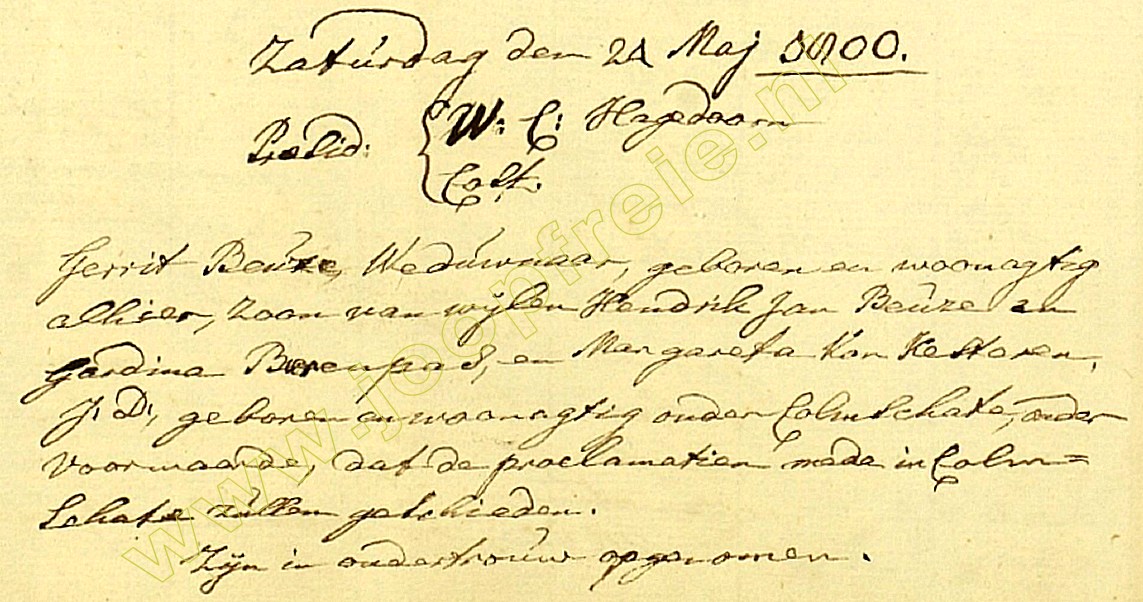 Zaturdag den 24 Maj 1800.
Præsid: { W: C: Hagedoorn
Cost.
Gerrit Beuze, Weduwnaar, geboren en woonagtig
alhier, zoon van wijlen Hendrik Jan Beuze en
Gardina Berenpas, en Margareta Van Kesteren,
J: D:, geboren en woonagtig onder Colmschate, onder
voorwaarde, dat de proclamatien mede in Colm=
schate zullen geschieden.
Zijn in ondertrouw opgenomen.
www.joopfreie.nl